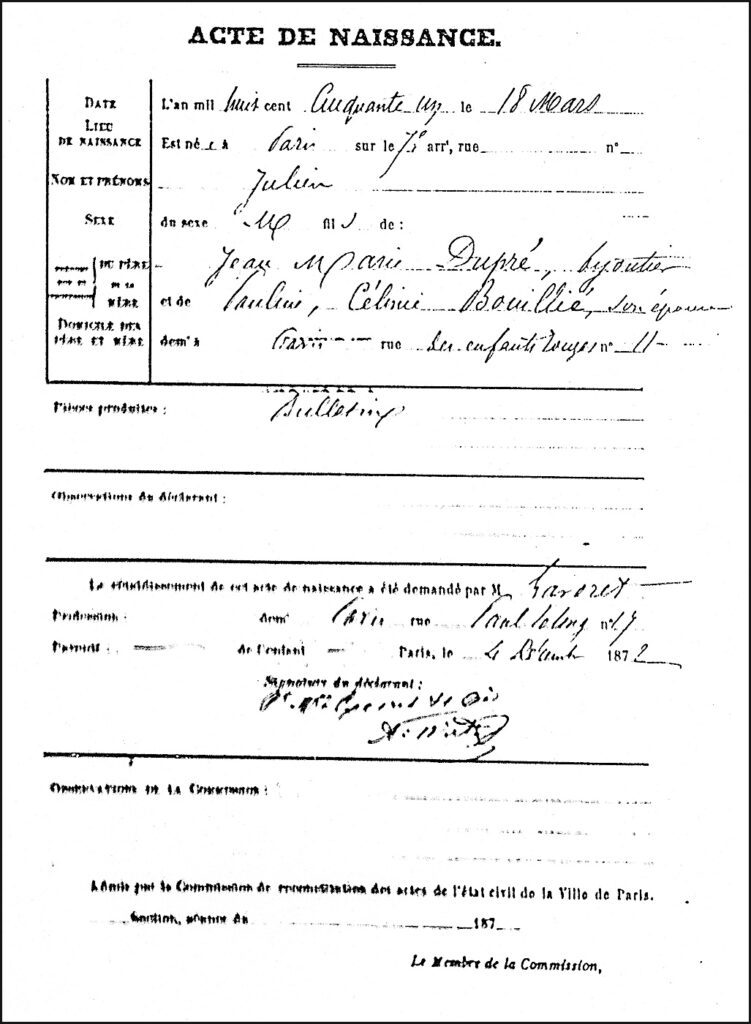 ACTE DE NAISSANCE.
DATE L'an mil huit cent Cinquante un le 18 Mars
LIEU DE NAISSANCE Est né à Paris sur le 7e arr, rue n°
NOM ET PRÉNOMS Julien
SEXE du sexe M fils de :
DU PÈRE Jean Marie Dupré, bijoutier
ET DE LA MÈRE et de Pauline, Célinie Bouillié, son épouse
DOMICILE DES PÈRE ET MÈRE demt à Paris rue des enfants rouges n° 11
Pièces produites : Bulletin
Observations du déclarant :
Le rétablissement de cet acte de naissance a été demandé par M Tavoret
Profession : demt Paris rue Paul n° 17
Parenté : de l'enfant Paris, le 4 Décembre 1872
Signature du déclarant :
OBSERVATIONS DE LA COMMISSION :
Admis par la Commission de reconstitution des actes de l'état civil de la Ville de Paris.
Section, séance du 187
Le Membre de la Commission,